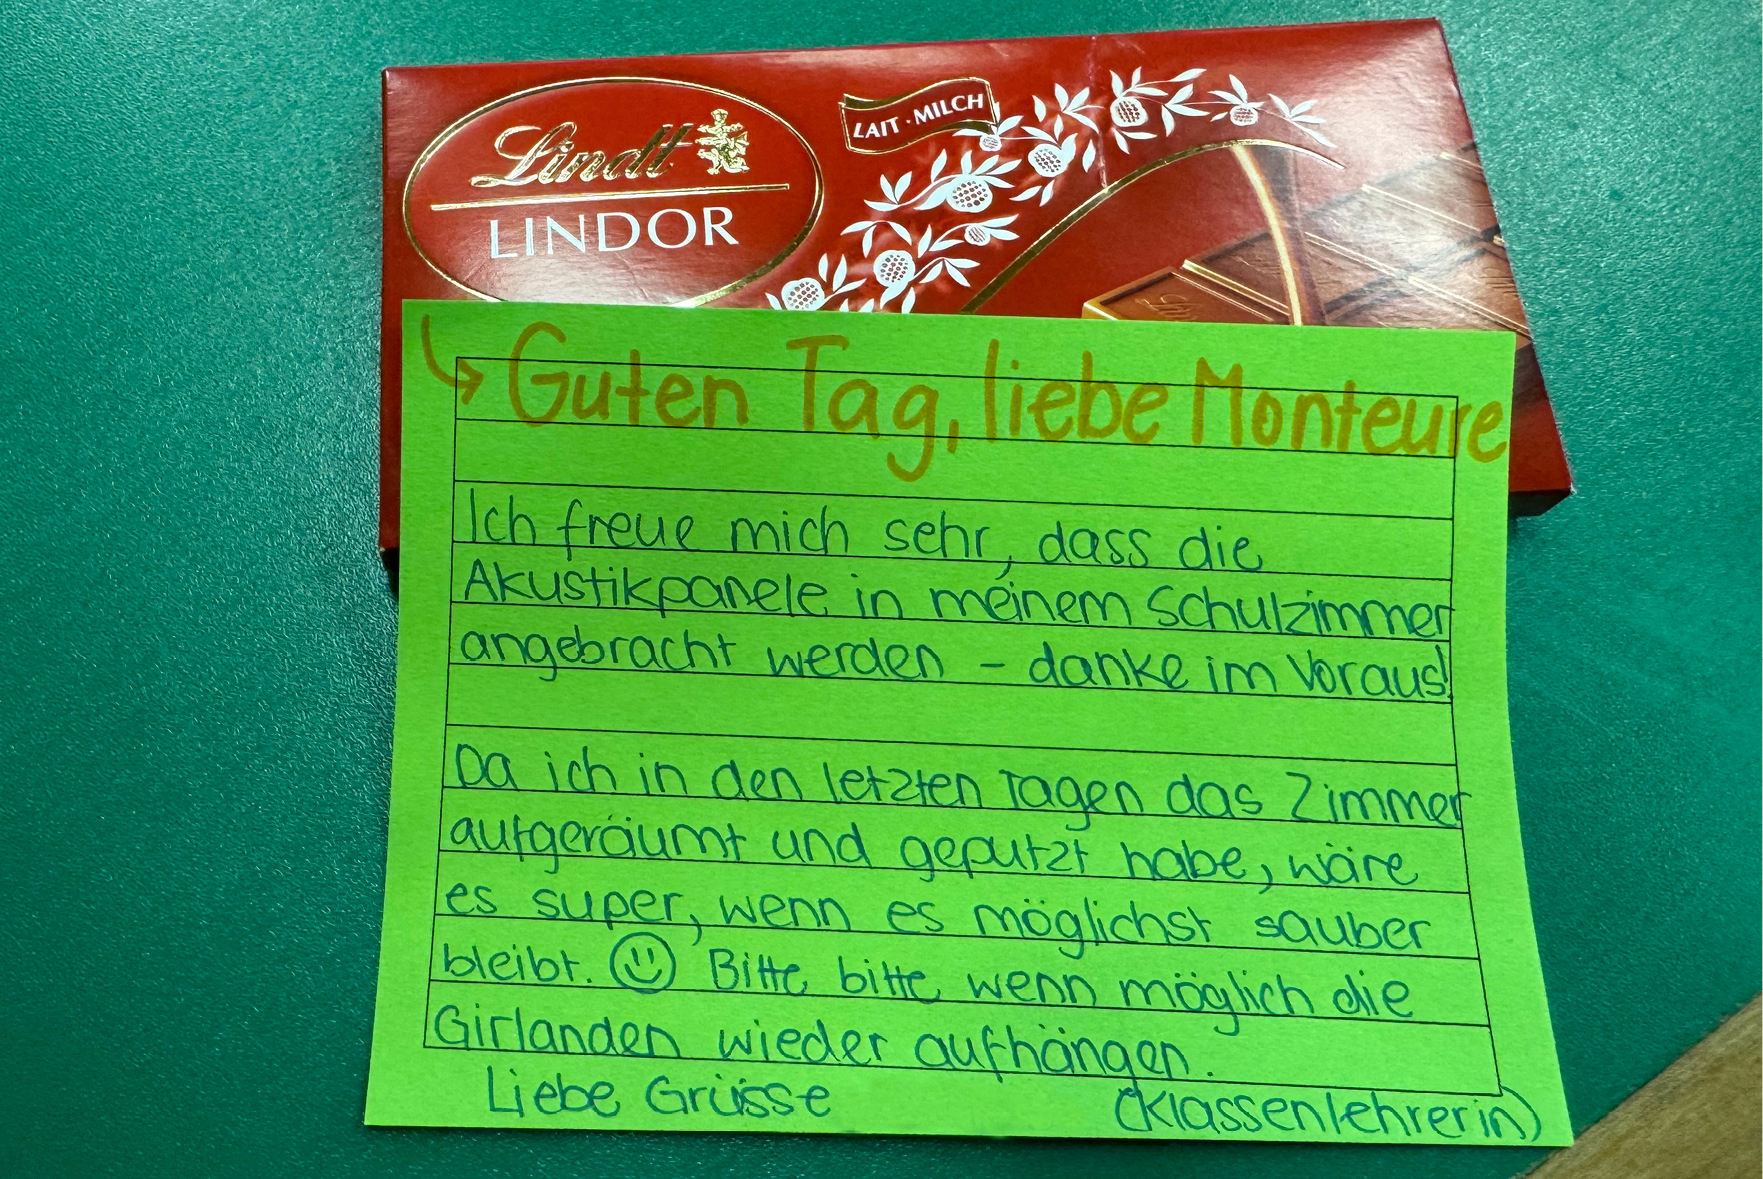 Lindt
LINDOR
LAIT · MILCH
Guten Tag, liebe Monteure
Ich freue mich sehr, dass die
Akustikpanele in meinem Schulzimmer
angebracht werden – danke im Voraus!
Da ich in den letzten Tagen das Zimmer
aufgeräumt und geputzt habe, wäre
es super, wenn es möglichst sauber
bleibt. ☺ Bitte bitte wenn möglich die
Girlanden wieder aufhängen.
Liebe Grüsse (Klassenlehrerin)